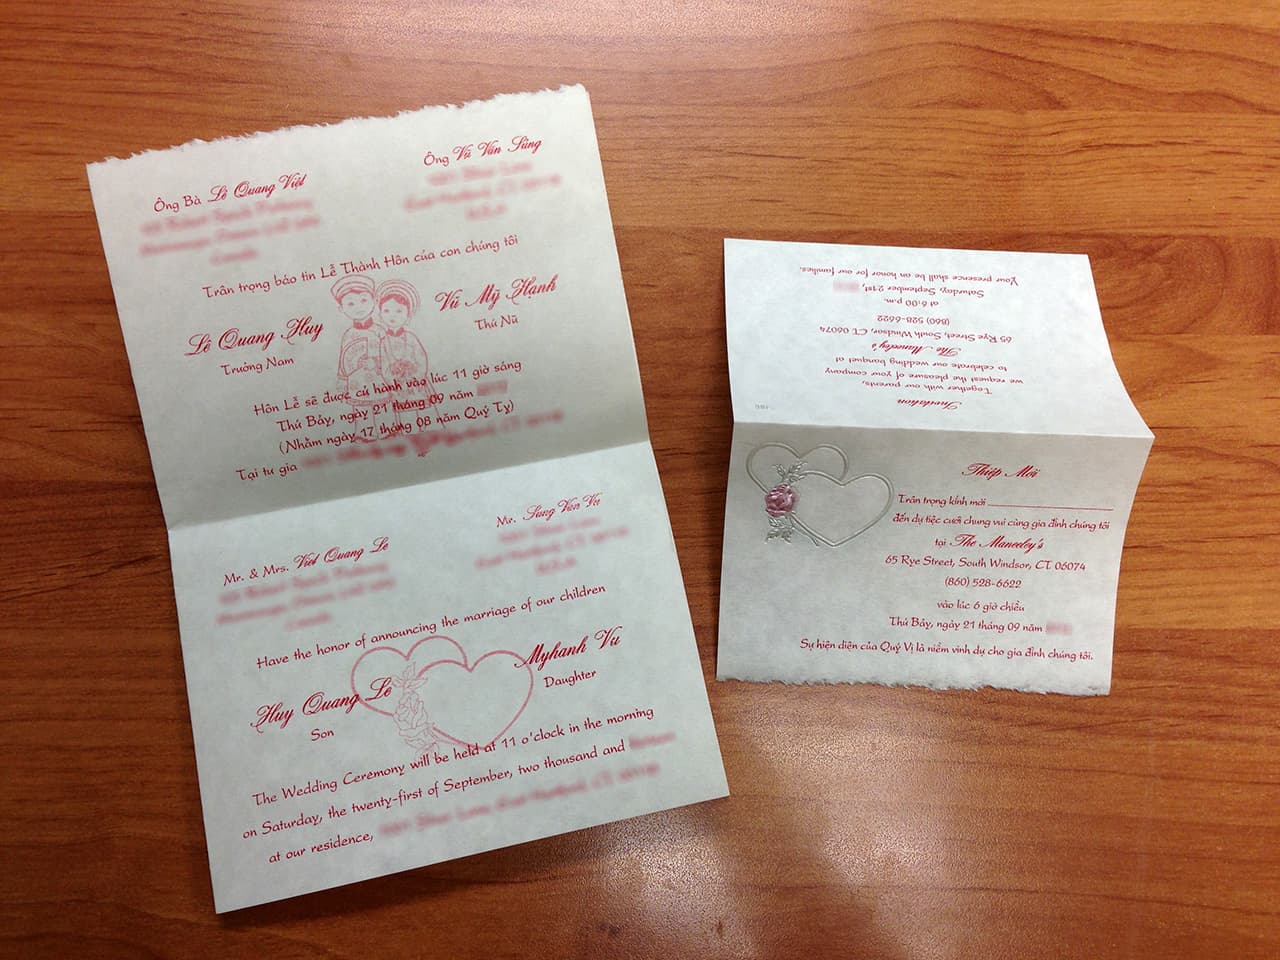 Ông Bà Lê Quang Việt
Ông Vũ Văn Sùng
Trân trọng báo tin Lễ Thành Hôn của con chúng tôi
Lê Quang Huy
Trưởng Nam
Vũ Mỹ Hạnh
Thứ Nữ
Hôn Lễ sẽ được cử hành vào lúc 11 giờ sáng
Thứ Bảy, ngày 21 tháng 09 năm
(Nhằm ngày 17 tháng 08 năm Quý Tỵ)
Tại tư gia
Mr. & Mrs. Viet Quang Le
Mr. Sung Van Vu
Have the honor of announcing the marriage of our children
Huy Quang Le
Son
Myhanh Vu
Daughter
The Wedding Ceremony will be held at 11 o'clock in the morning
on Saturday, the twenty-first of September, two thousand and
at our residence,
Invitation
Together with our parents,
we request the pleasure of your company
to celebrate our wedding banquet at
The Maneeley's
65 Rye Street, South Windsor, CT 06074
(860) 528-6622
at 6:00 p.m.
Saturday, September 21st,
Your presence shall be an honor for our families.
Thiệp Mời
Trân trọng kính mời
đến dự tiệc cưới chung vui cùng gia đình chúng tôi
tại The Maneeley's
65 Rye Street, South Windsor, CT 06074
(860) 528-6622
vào lúc 6 giờ chiều
Thứ Bảy, ngày 21 tháng 09 năm
Sự hiện diện của Quý Vị là niềm vinh dự cho gia đình chúng tôi.